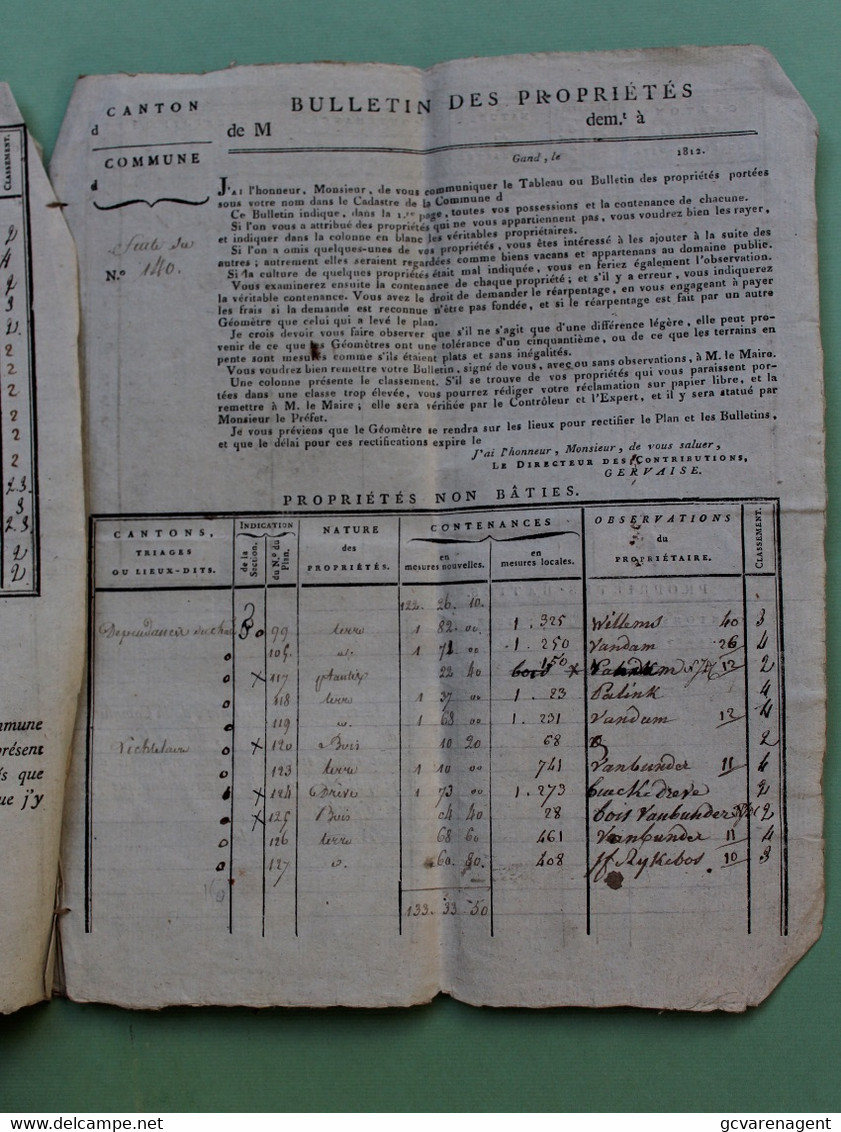 CANTON
d
COMMUNE
d
Suite du
N.º 140.
BULLETIN DES PROPRIÉTÉS
de M dem.t à
Gand, le 1812.
J'AI l'honneur, Monsieur, de vous communiquer le Tableau ou Bulletin des propriétés portées
sous votre nom dans le Cadastre de la Commune d
Ce Bulletin indique, dans la 1.re page, toutes vos possessions et la contenance de chacune.
Si l'on vous a attribué des propriétés qui ne vous appartiennent pas, vous voudrez bien les rayer,
et indiquer dans la colonne en blanc les véritables propriétaires.
Si l'on a omis quelques-unes de vos propriétés, vous êtes intéressé à les ajouter à la suite des
autres; autrement elles seraient regardées comme biens vacans et appartenans au domaine public.
Si la culture de quelques propriétés était mal indiquée, vous en feriez également l'observation.
Vous examinerez ensuite la contenance de chaque propriété; et s'il y a erreur, vous indiquerez
la véritable contenance. Vous avez le droit de demander le réarpentage, en vous engageant à payer
les frais si la demande est reconnue n'être pas fondée, et si le réarpentage est fait par un autre
Géomètre que celui qui a levé le plan.
Je crois devoir vous faire observer que s'il ne s'agit que d'une différence légère, elle peut pro-
venir de ce que les Géomètres ont une tolérance d'un cinquantième, ou de ce que les terrains en
pente sont mesurés comme s'ils étaient plats et sans inégalités.
Vous voudrez bien remettre votre Bulletin, signé de vous, avec ou sans observations, à M. le Maire.
Une colonne présente le classement. S'il se trouve de vos propriétés qui vous paraissent por-
tées dans une classe trop élevée, vous pourrez rédiger votre réclamation sur papier libre, et la
remettre à M. le Maire; elle sera vérifiée par le Contrôleur et l'Expert, et il y sera statué par
Monsieur le Préfet.
Je vous préviens que le Géomètre se rendra sur les lieux pour rectifier le Plan et les Bulletins,
et que le délai pour ces rectifications expire le
J'ai l'honneur, Monsieur, de vous saluer,
LE DIRECTEUR DES CONTRIBUTIONS,
GERVAISE.
PROPRIÉTÉS NON BÂTIES.
CANTONS, TRIAGES OU LIEUX-DITS. INDICATION de la Section. du N.º du Plan. NATURE des PROPRIÉTÉS. CONTENANCES en mesures nouvelles. en mesures locales. OBSERVATIONS du PROPRIÉTAIRE. CLASSEMENT.
122. 26. 10.
99 terre 1 82. 00. 1. 325 Willems 40 3
105. 1 71 00 1. 250 Vandam 26 4
x 117 22 40 150 12 2
118 terre 1 37 00 1. 23 Palink 4
119 1 68 00 1. 231 Vandam 12 4
x 120 Bois 10 20 68 2
123 terre 1 10 00 741 Vanbunder 11 4
x 124 Drève 1 73 00 1. 273 2
x 125 Bois 04 40 28 bois Vanbunder 2
126 terre 68 60 461 Vanbunder 11 4
127 60. 80. 408 Rykebos 10 3
133. 33. 50
CLASSEMENT.
2
4
2
3
2.
2
2
2
2
2
2
2.3.
3
2.3.
2
2
mmune
présent
s que
ue j'y
gcvarenagent